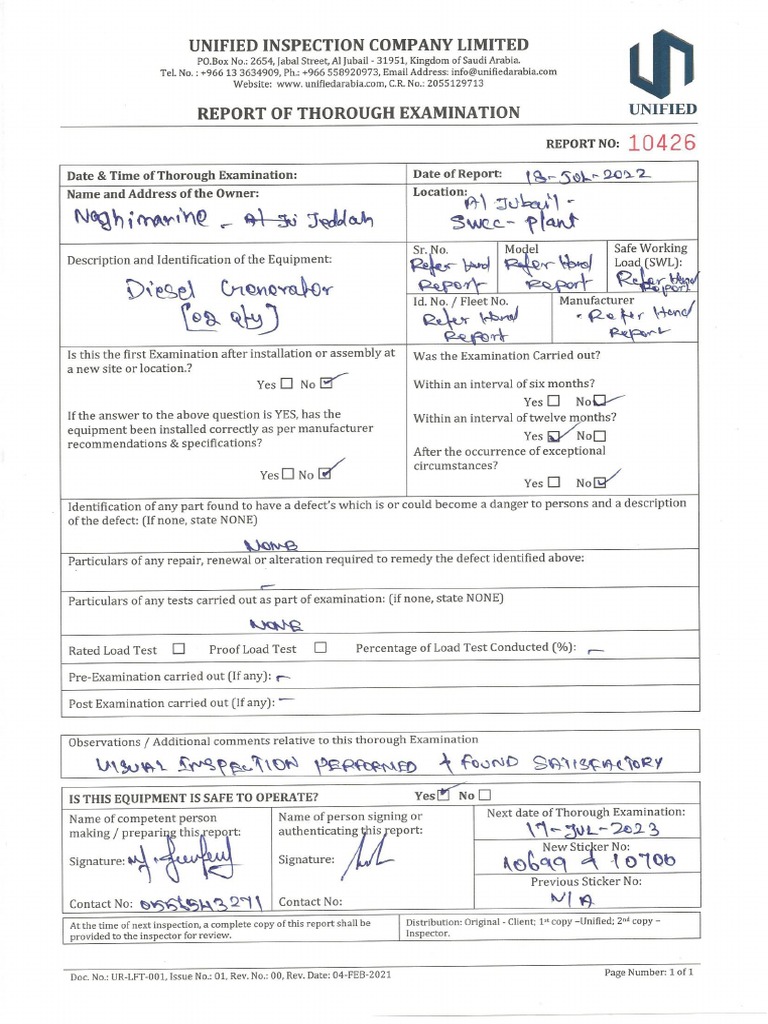 UNIFIED INSPECTION COMPANY LIMITED
P.O.Box No.: 2654, Jabal Street, Al Jubail - 31951, Kingdom of Saudi Arabia.
Tel. No. : +966 13 3634909, Ph.: +966 558920973, Email Address: info@unifiedarabia.com
Website: www. unifiedarabia.com, C.R. No.: 2055129713
UNIFIED
REPORT OF THOROUGH EXAMINATION
REPORT NO: 10426
Date & Time of Thorough Examination:
Date of Report: 18-JUL-2022
Name and Address of the Owner:
Naghimarine - Al Ju Jeddah
Location: Al Jubail -
SWCC - Plant
Description and Identification of the Equipment:
Diesel Generator
[02 qty]
Sr. No.
Refer Hand
Report
Model
Refer Hand
Report
Safe Working
Load (SWL):
Refer Hand
Report
Id. No. / Fleet No.
Refer Hand
Report
Manufacturer
- Refer Hand
Report
Is this the first Examination after installation or assembly at
a new site or location.?
Yes No
If the answer to the above question is YES, has the
equipment been installed correctly as per manufacturer
recommendations & specifications?
Yes No
Was the Examination Carried out?
Within an interval of six months?
Yes No
Within an interval of twelve months?
Yes No
After the occurrence of exceptional
circumstances?
Yes No
Identification of any part found to have a defect's which is or could become a danger to persons and a description
of the defect: (If none, state NONE)
NONE
Particulars of any repair, renewal or alteration required to remedy the defect identified above:
-
Particulars of any tests carried out as part of examination: (if none, state NONE)
NONE
Rated Load Test Proof Load Test Percentage of Load Test Conducted (%): -
Pre-Examination carried out (If any): -
Post Examination carried out (If any): -
Observations / Additional comments relative to this thorough Examination
VISUAL INSPECTION PERFORMED & FOUND SATISFACTORY
IS THIS EQUIPMENT IS SAFE TO OPERATE? Yes No
Name of competent person
making / preparing this report:
Signature:
Contact No: 0551543271
Name of person signing or
authenticating this report:
Signature:
Contact No:
Next date of Thorough Examination:
17-JUL-2023
New Sticker No:
10699 & 10700
Previous Sticker No:
N/A
At the time of next inspection, a complete copy of this report shall be
provided to the inspector for review.
Distribution: Original - Client; 1st copy –Unified; 2nd copy –
Inspector.
Doc. No.: UR-LFT-001, Issue No.: 01, Rev. No.: 00, Rev. Date: 04-FEB-2021
Page Number: 1 of 1